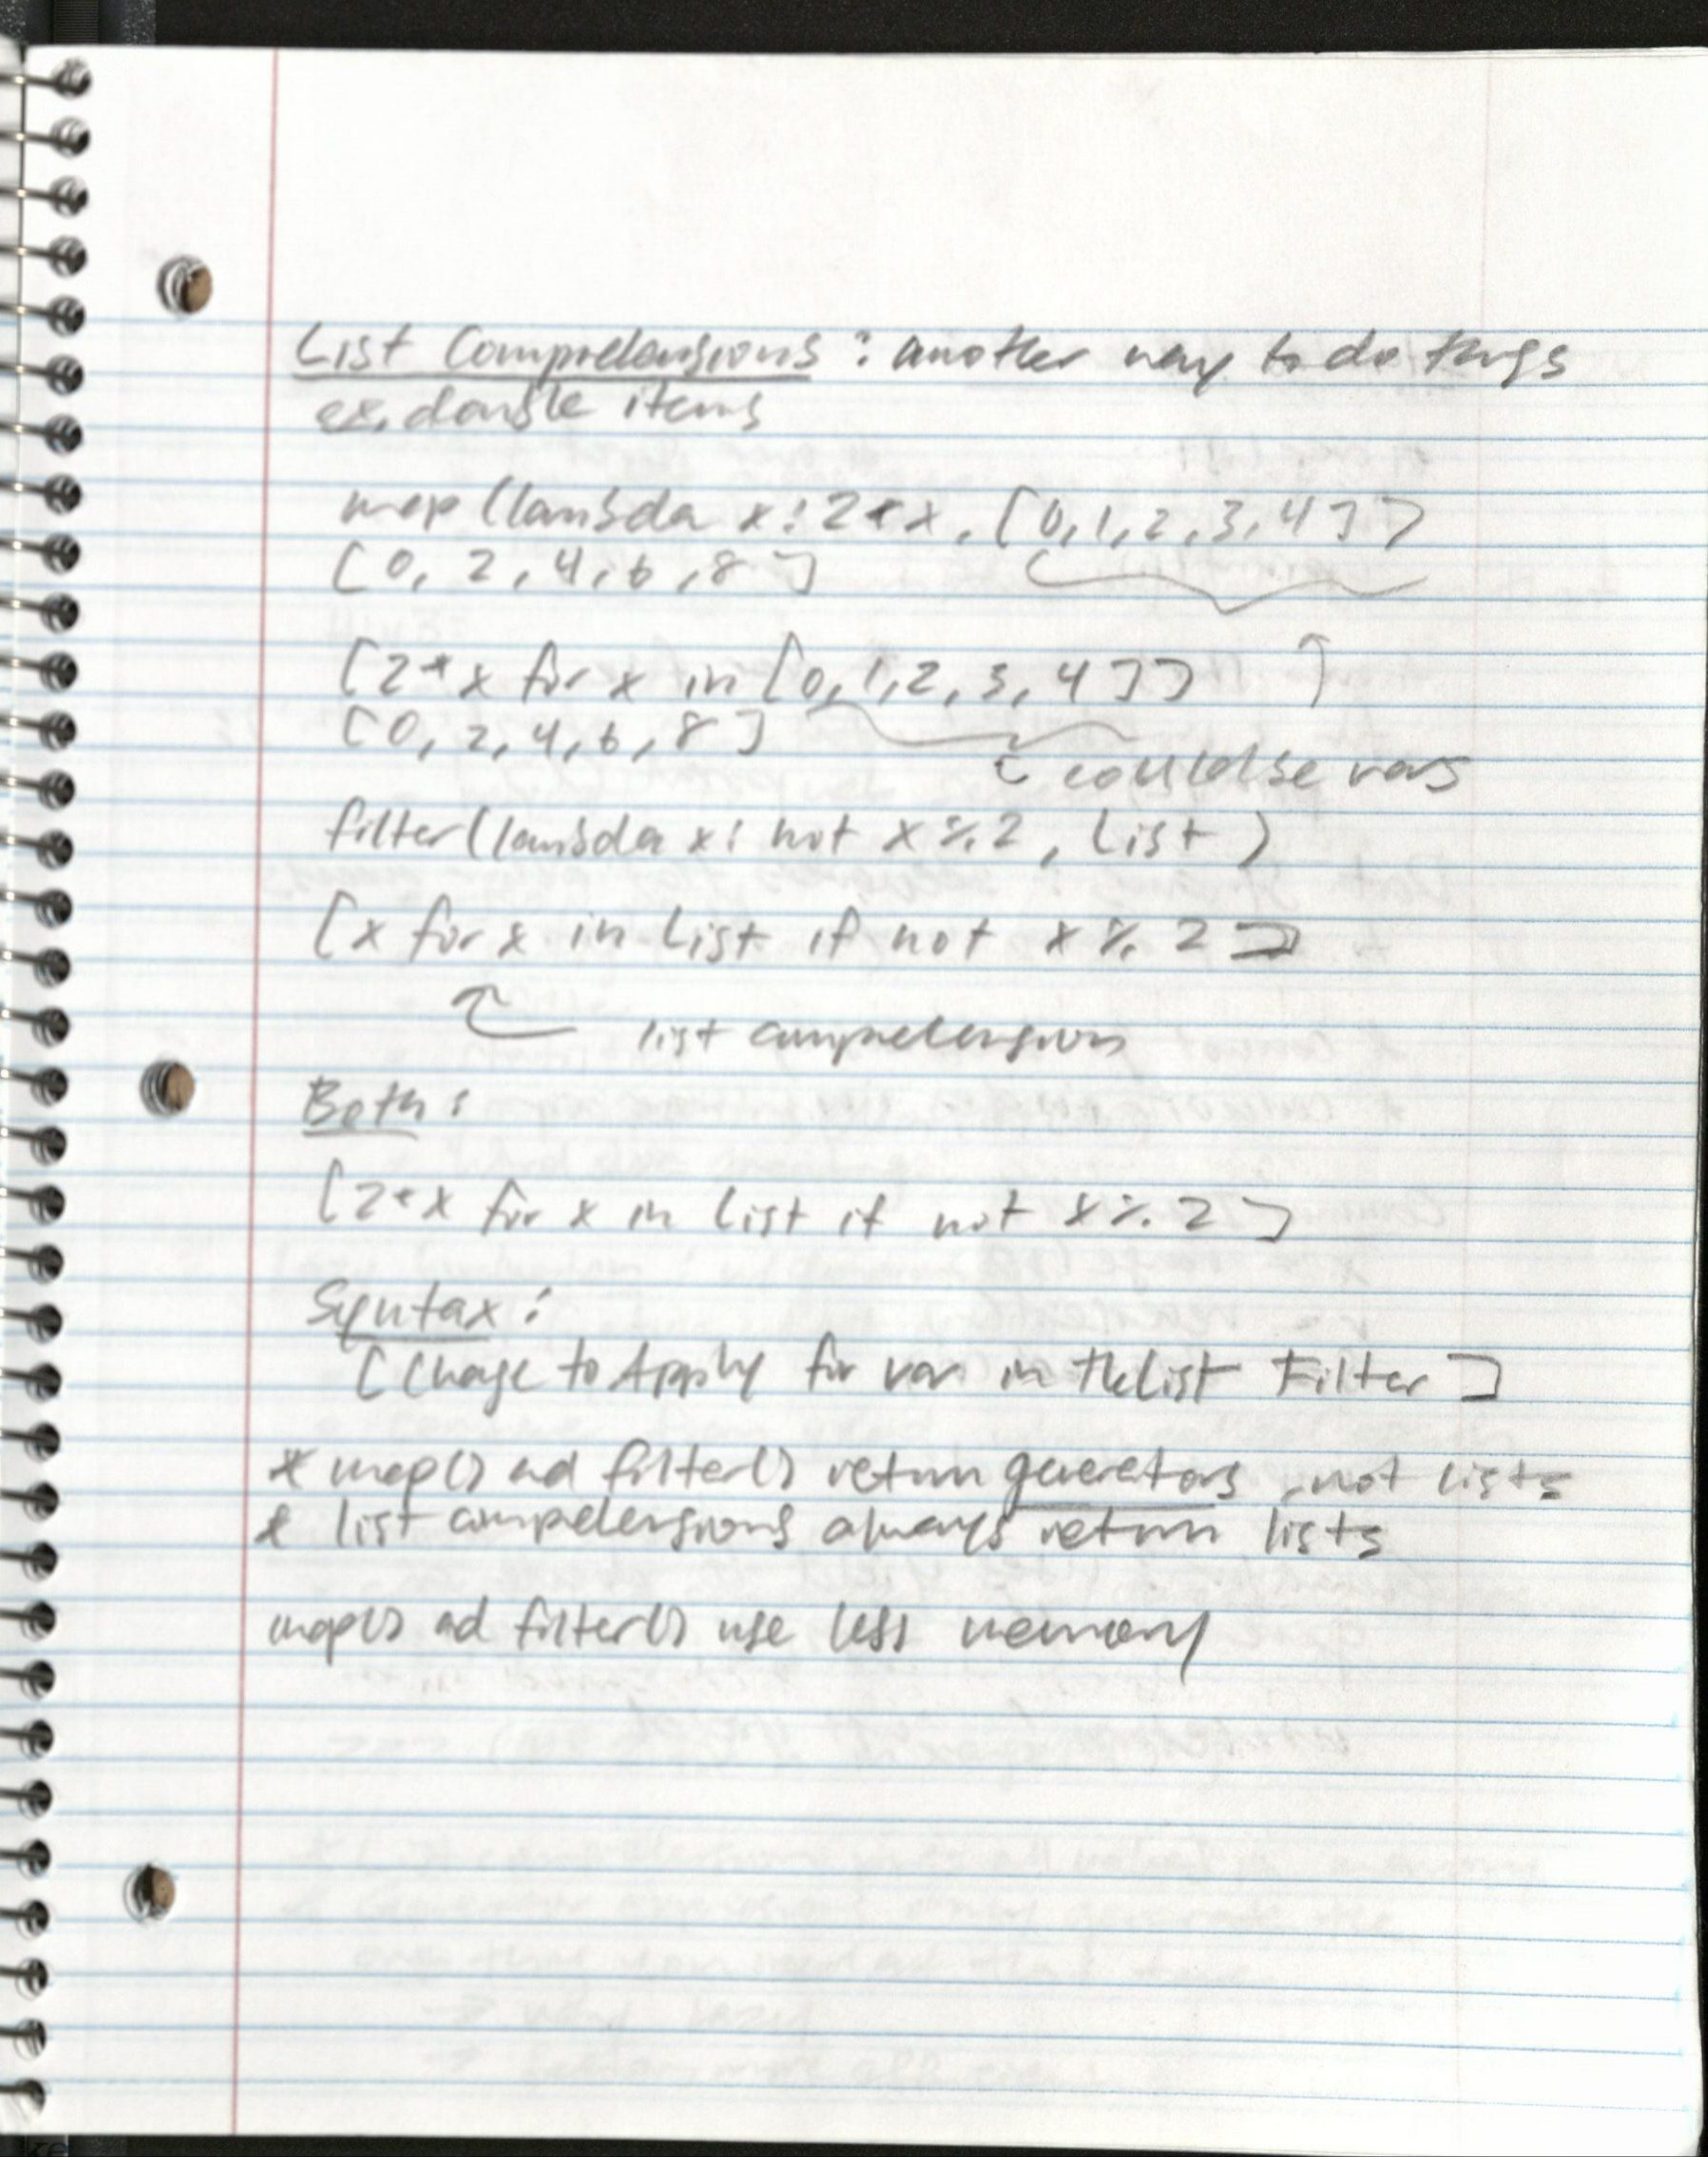 List Comprehensions : another way to do things
ex. double items
map (lambda x: 2*x, [0,1,2,3,4])
[0, 2, 4, 6, 8]
[2*x for x in [0,1,2,3,4]]
[0, 2, 4, 6, 8]
could be vars
filter (lambda x: not x % 2, List)
[x for x in List if not x % 2]
list comprehension
Both:
[2*x for x in List if not x % 2]
Syntax:
[Change to Apply for var in the List Filter]
* map() and filter() return generators, not lists
* list comprehensions always return lists
map() and filter() use less memory